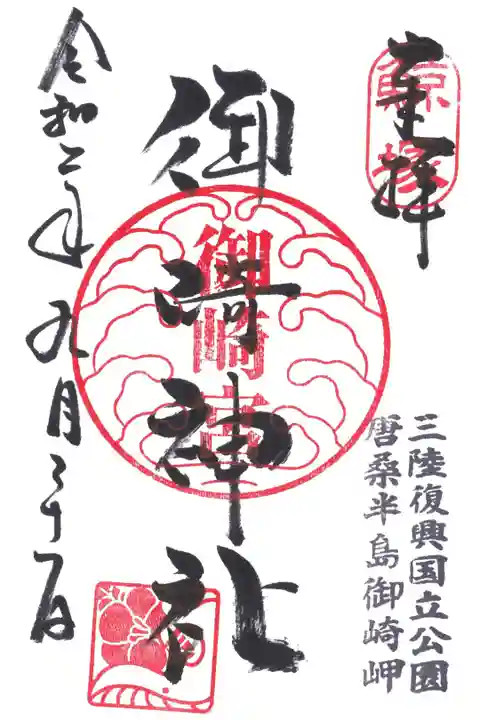 奉拝
鯨
三陸復興国立公園
唐桑半島御崎岬
御崎神社
御崎宮
令和二年九月二十一日